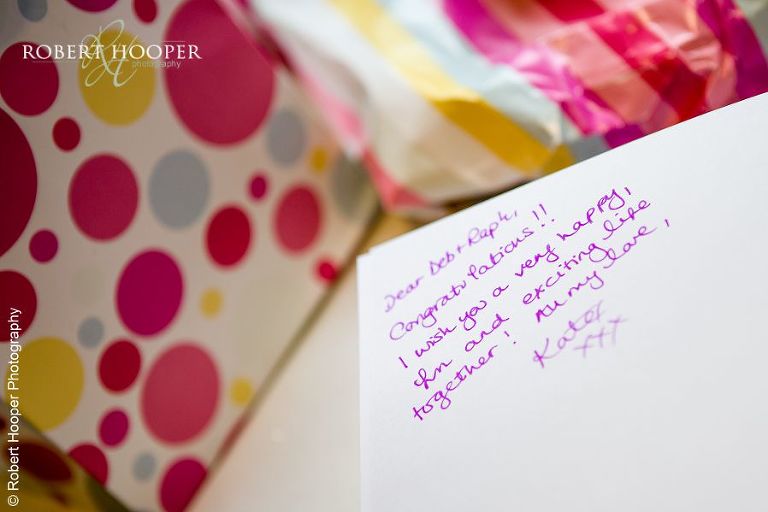 ROBERT HOOPER
photography
Dear Deb + Raph,
Congratulations!!
I wish you a very happy,
fun and exciting life
together! All my love,
Kate
xxx
© Robert Hooper Photography